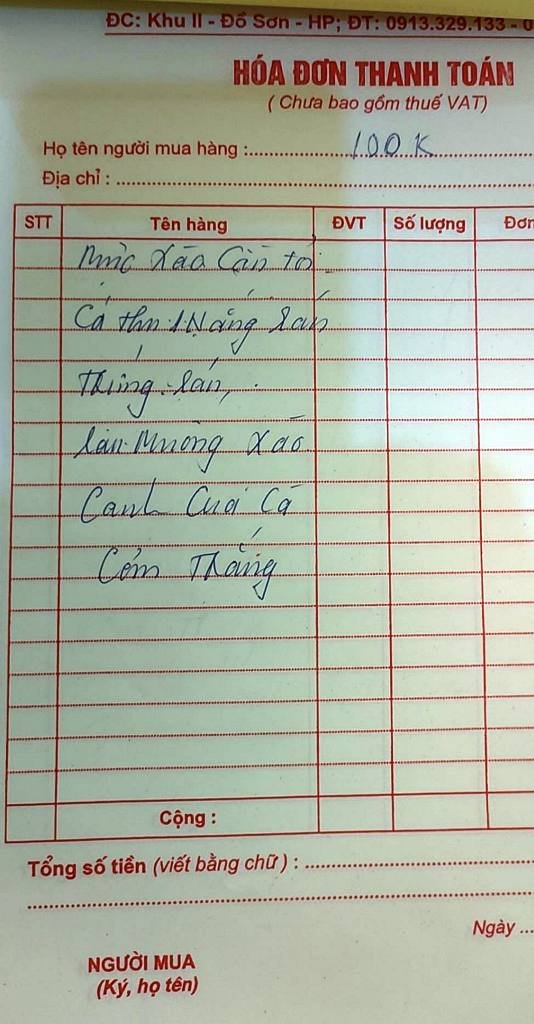 ĐC: Khu II - Đồ Sơn - HP; ĐT: 0913.329.133 - 0
HÓA ĐƠN THANH TOÁN
( Chưa bao gồm thuế VAT)
Họ tên người mua hàng : 100K
Địa chỉ :
STT Tên hàng ĐVT Số lượng Đơn
Mực Xào Cần tỏi
Cá thu 1 Nắng Rán
Trứng Rán,
Rau Muống Xào
Canh Cua Cà
Cơm Trắng
Cộng :
Tổng số tiền (viết bằng chữ) :
Ngày ...
NGƯỜI MUA
(Ký, họ tên)